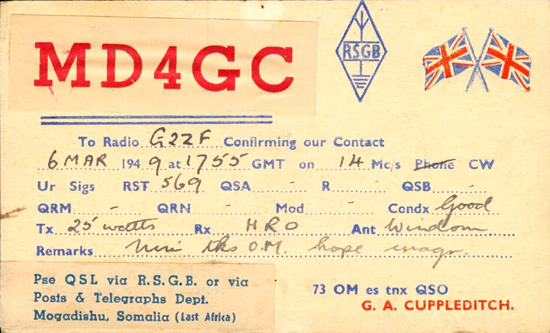 MD4GC
RSGB
To Radio G2ZF Confirming our Contact
6 MAR 1949 at 1755 GMT on 14 Mc/s Phone CW
Ur Sigs RST 569 QSA - R - QSB -
QRM - QRN - Mod - Condx Good
Tx 25 watts Rx HRO Ant Windom
Remarks tks O.M. hope
Pse QSL via R.S.G.B. or via
Posts & Telegraphs Dept.
Mogadishu, Somalia (East Africa)
73 OM es tnx QSO
G. A. CUPPLEDITCH.